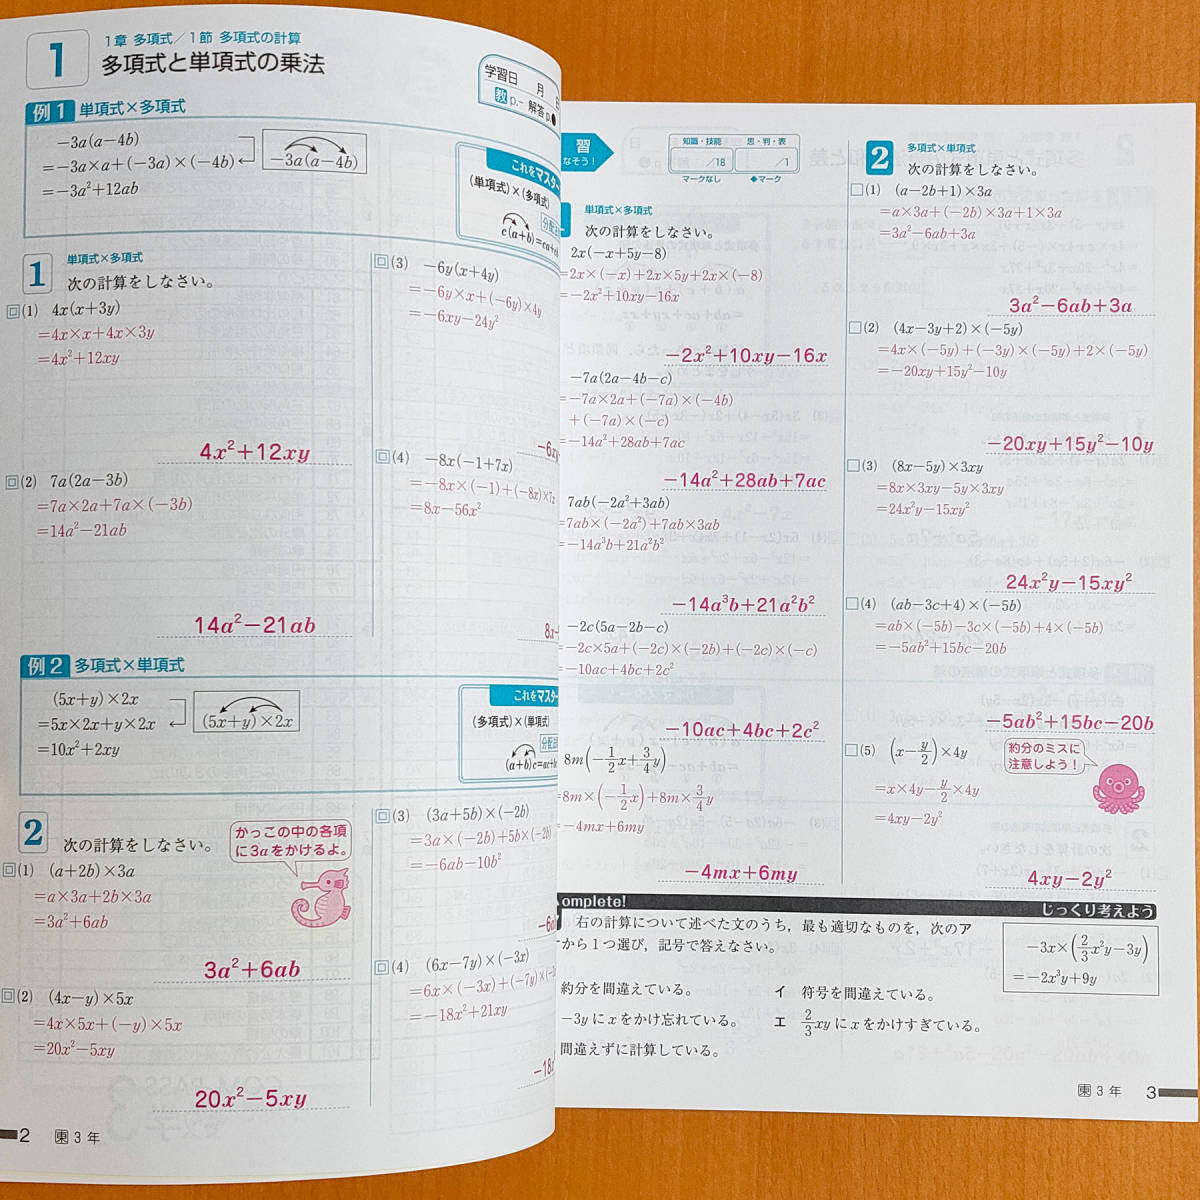 1
1章 多項式／1節 多項式の計算
多項式と単項式の乗法
学習日 月
教 p.- 解答 p.
例1 単項式×多項式
−3a(a−4b)
=−3a×a+(−3a)×(−4b)
=−3a²+12ab
−3a(a−4b)
これをマスター
(単項式)×(多項式)
c(a+b)=ca+
1
単項式×多項式
次の計算をしなさい。
(1) 4x(x+3y)
=4x×x+4x×3y
=4x²+12xy
4x²+12xy
(2) 7a(2a−3b)
=7a×2a+7a×(−3b)
=14a²−21ab
14a²−21ab
(3) −6y(x+4y)
=−6y×x+(−6y)×4y
=−6xy−24y²
−6xy
(4) −8x(−1+7x)
=−8x×(−1)+(−8x)×7x
=8x−56x²
8x−
例2 多項式×単項式
(5x+y)×2x
=5x×2x+y×2x
=10x²+2xy
(5x+y)×2x
これをマスター
(多項式)×(単項式)
(a+b)c=ac+
2
次の計算をしなさい。
かっこの中の各項
に3aをかけるよ。
(1) (a+2b)×3a
=a×3a+2b×3a
=3a²+6ab
3a²+6ab
(2) (4x−y)×5x
=4x×5x+(−y)×5x
=20x²−5xy
20x²−5xy
(3) (3a+5b)×(−2b)
=3a×(−2b)+5b×(−2b)
=−6ab−10b²
−6a
(4) (6x−7y)×(−3x)
=6x×(−3x)+(−7y)×(−3x
=−18x²+21xy
−18x
2 東 3年
習
なそう！
知識・技能
/18
思・判・表
/1
マークなし
◆マーク
単項式×多項式
次の計算をしなさい。
2x(−x+5y−8)
=2x×(−x)+2x×5y+2x×(−8)
=−2x²+10xy−16x
−2x²+10xy−16x
−7a(2a−4b−c)
=−7a×2a+(−7a)×(−4b)
+(−7a)×(−c)
=−14a²+28ab+7ac
−14a²+28ab+7ac
7ab(−2a²+3ab)
=7ab×(−2a²)+7ab×3ab
=−14a³b+21a²b²
−14a³b+21a²b²
−2c(5a−2b−c)
=−2c×5a+(−2c)×(−2b)+(−2c)×(−c)
=−10ac+4bc+2c²
−10ac+4bc+2c²
8m(−1/2x+3/4y)
=8m×(−1/2x)+8m×3/4y
=−4mx+6my
−4mx+6my
2
多項式×単項式
次の計算をしなさい。
(1) (a−2b+1)×3a
=a×3a+(−2b)×3a+1×3a
=3a²−6ab+3a
3a²−6ab+3a
(2) (4x−3y+2)×(−5y)
=4x×(−5y)+(−3y)×(−5y)+2×(−5y)
=−20xy+15y²−10y
−20xy+15y²−10y
(3) (8x−5y)×3xy
=8x×3xy−5y×3xy
=24x²y−15xy²
24x²y−15xy²
(4) (ab−3c+4)×(−5b)
=ab×(−5b)−3c×(−5b)+4×(−5b)
=−5ab²+15bc−20b
−5ab²+15bc−20b
(5) (x−y/2)×4y
=x×4y−y/2×4y
=4xy−2y²
約分のミスに
注意しよう！
4xy−2y²
omplete!
じっくり考えよう
右の計算について述べた文のうち，最も適切なものを，次のア
から1つ選び，記号で答えなさい。
−3x×(2/3x²y−3y)
=−2x³y+9y
約分を間違えている。
イ 符号を間違えている。
−3yにxをかけ忘れている。
エ 2/3xyにxをかけすぎている。
間違えずに計算している。
東 3年 3